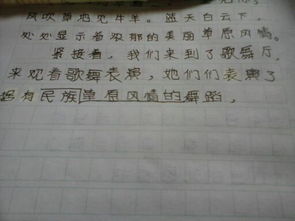 风吹草地见牛羊。蓝天白云下,
处处显示着浓郁的美丽草原风情。
紧接着,我们来到了歌舞厅,
来观看歌舞表演,她们们表演了
拥有民族草原风情的舞蹈,